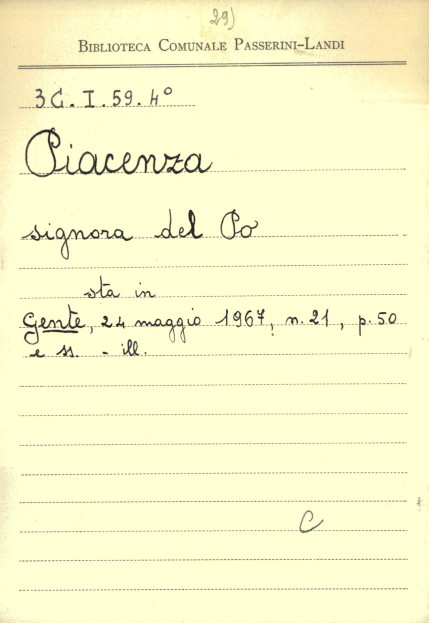 29)
BIBLIOTECA COMUNALE PASSERINI-LANDI
3G.I.59.4°
Piacenza
signora del Po
sta in
Gente, 24 maggio 1967, n.21, p.50
e ss. - ill.
C